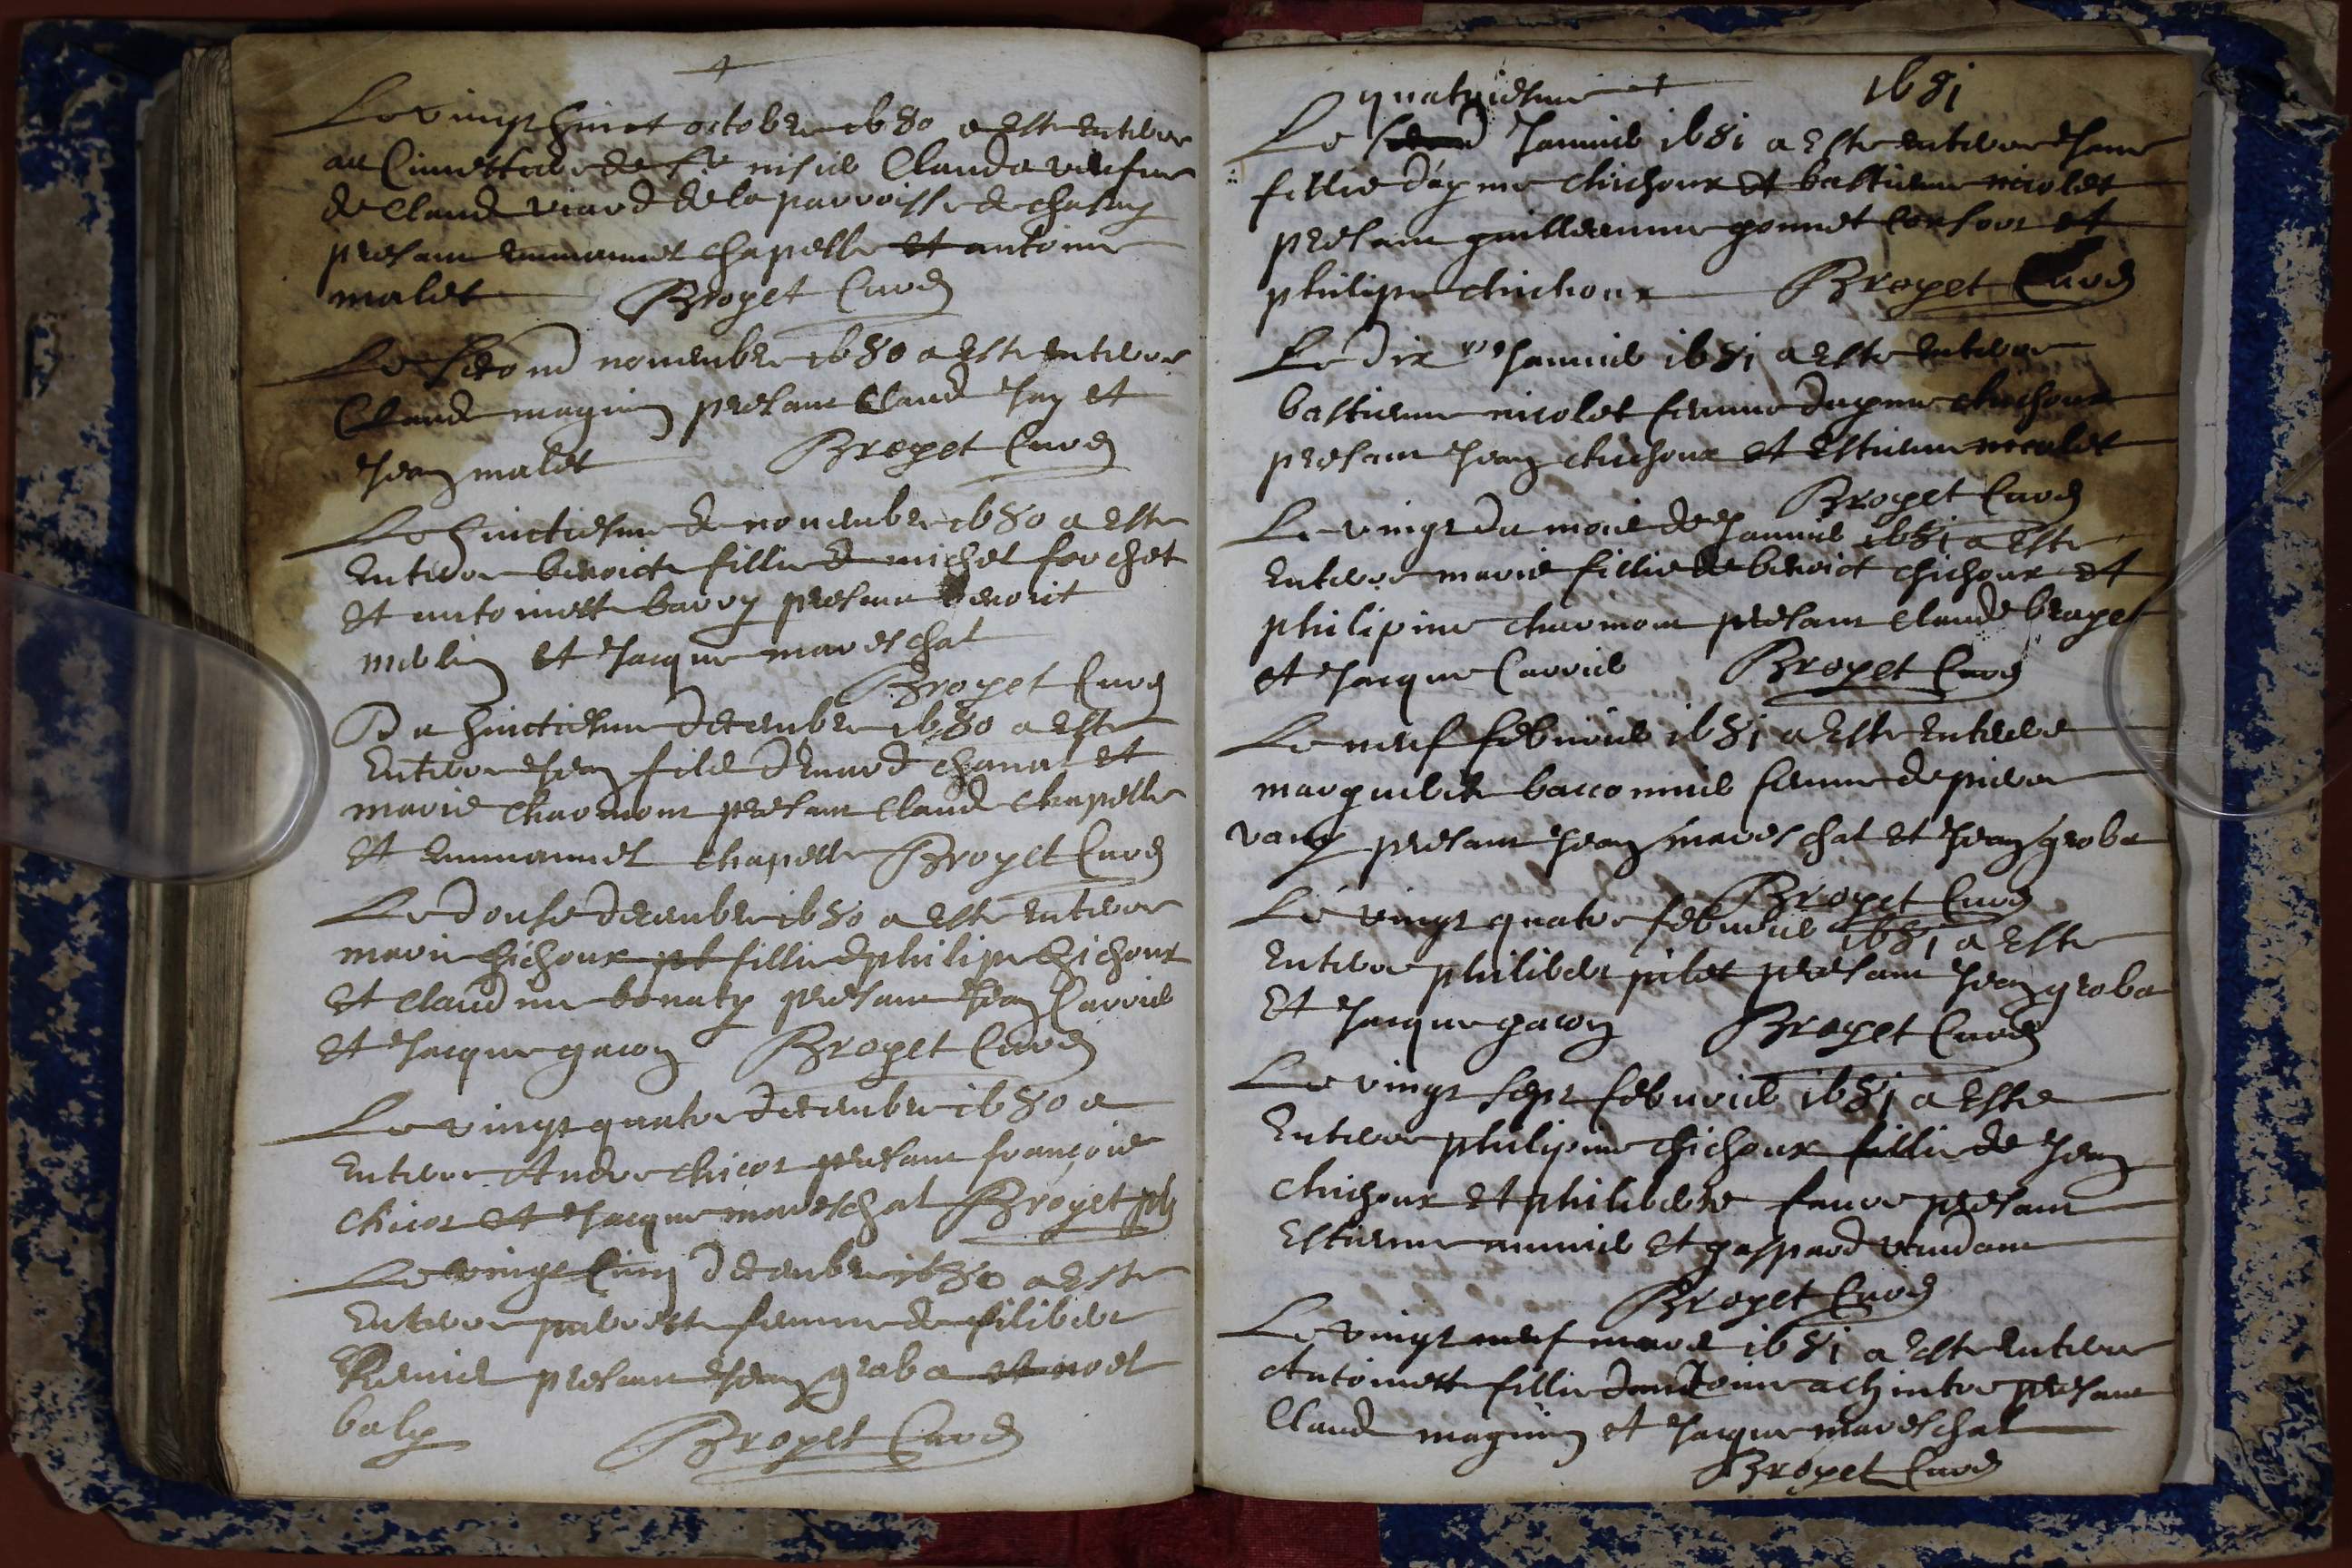 Le vingt huict octobre 1680 a este enterre
au Cimettiere de St nisier Clauda veufue
de Claude viard de la parroisse de chasay
presant emmanuel chapelle et antoine
malet Broyet Curé
Le second novembre 1680 a este enterre
Claude magnin presant Claude Jay et
Jean malet Broyet Curé
Le huictiesme de novembre 1680 a este
enterre benoicte fillie de michel forchet
et antoinette barry presant benoict
merlin et Jacque mareschal
Broyet Curé
Du huictiesme decembre 1680 a este
enterre Jean fils d'Emard chanal et
marie charmont presant Claude chapelle
et emmanuel chapelle Broyet Curé
Le douse decembre 1680 a este enterre
marie chichoux fillie de philipe chichoux
et Claudine bonaty presant Jean Carrie
et Jacque gacon Broyet Curé
Le vingt quatre decembre 1680 a
enterre Andre chicot presant françois
chicot et Jacque mareschal Broyet ptr
Le vingt Cinq decembre 1680 a este
enterre pierrette femme de filibert
presant Jean groba et noel
baly Broyet Curé
quatriesme 1681
Le Janvier 1681 a este enterre Jeane
fillie d'ayme chichoux et bastienne nicolet
presant guillerme gonnet et
philipe chichoux Broyet Curé
Le dix Janvier 1681 a este enterre
bastienne nicolet femme d'ayme chichoux
presant Jean chichoux et estienne nicolet
Broyet Curé
Le vingt du mois de Janvier 1681 a este
enterre marie fillie de benoict chichoux et
philipine charmont presant Claude broyet
et Jacque Carrie Broyet Curé
Le neuf febvrier 1681 a este enterre
marguerite bacconnier femme de pierre
presant Jean mareschal et Jean groba
Broyet Curé
Le vingt quatre febvrier 1681 a este
enterre philibert pilet presant Jean groba
et Jacque gacon Broyet Curé
Le vingt sept febvrier 1681 a este
enterre philipine chichoux fillie de Jean
chichoux et philiberte faure presant
estienne et gaspard
Broyet Curé
Le vingt neuf mars 1681 a este enterre
Antoinette fillie d'antoine achintre presant
Claude magnin et Jacque mareschal
Broyet Curé